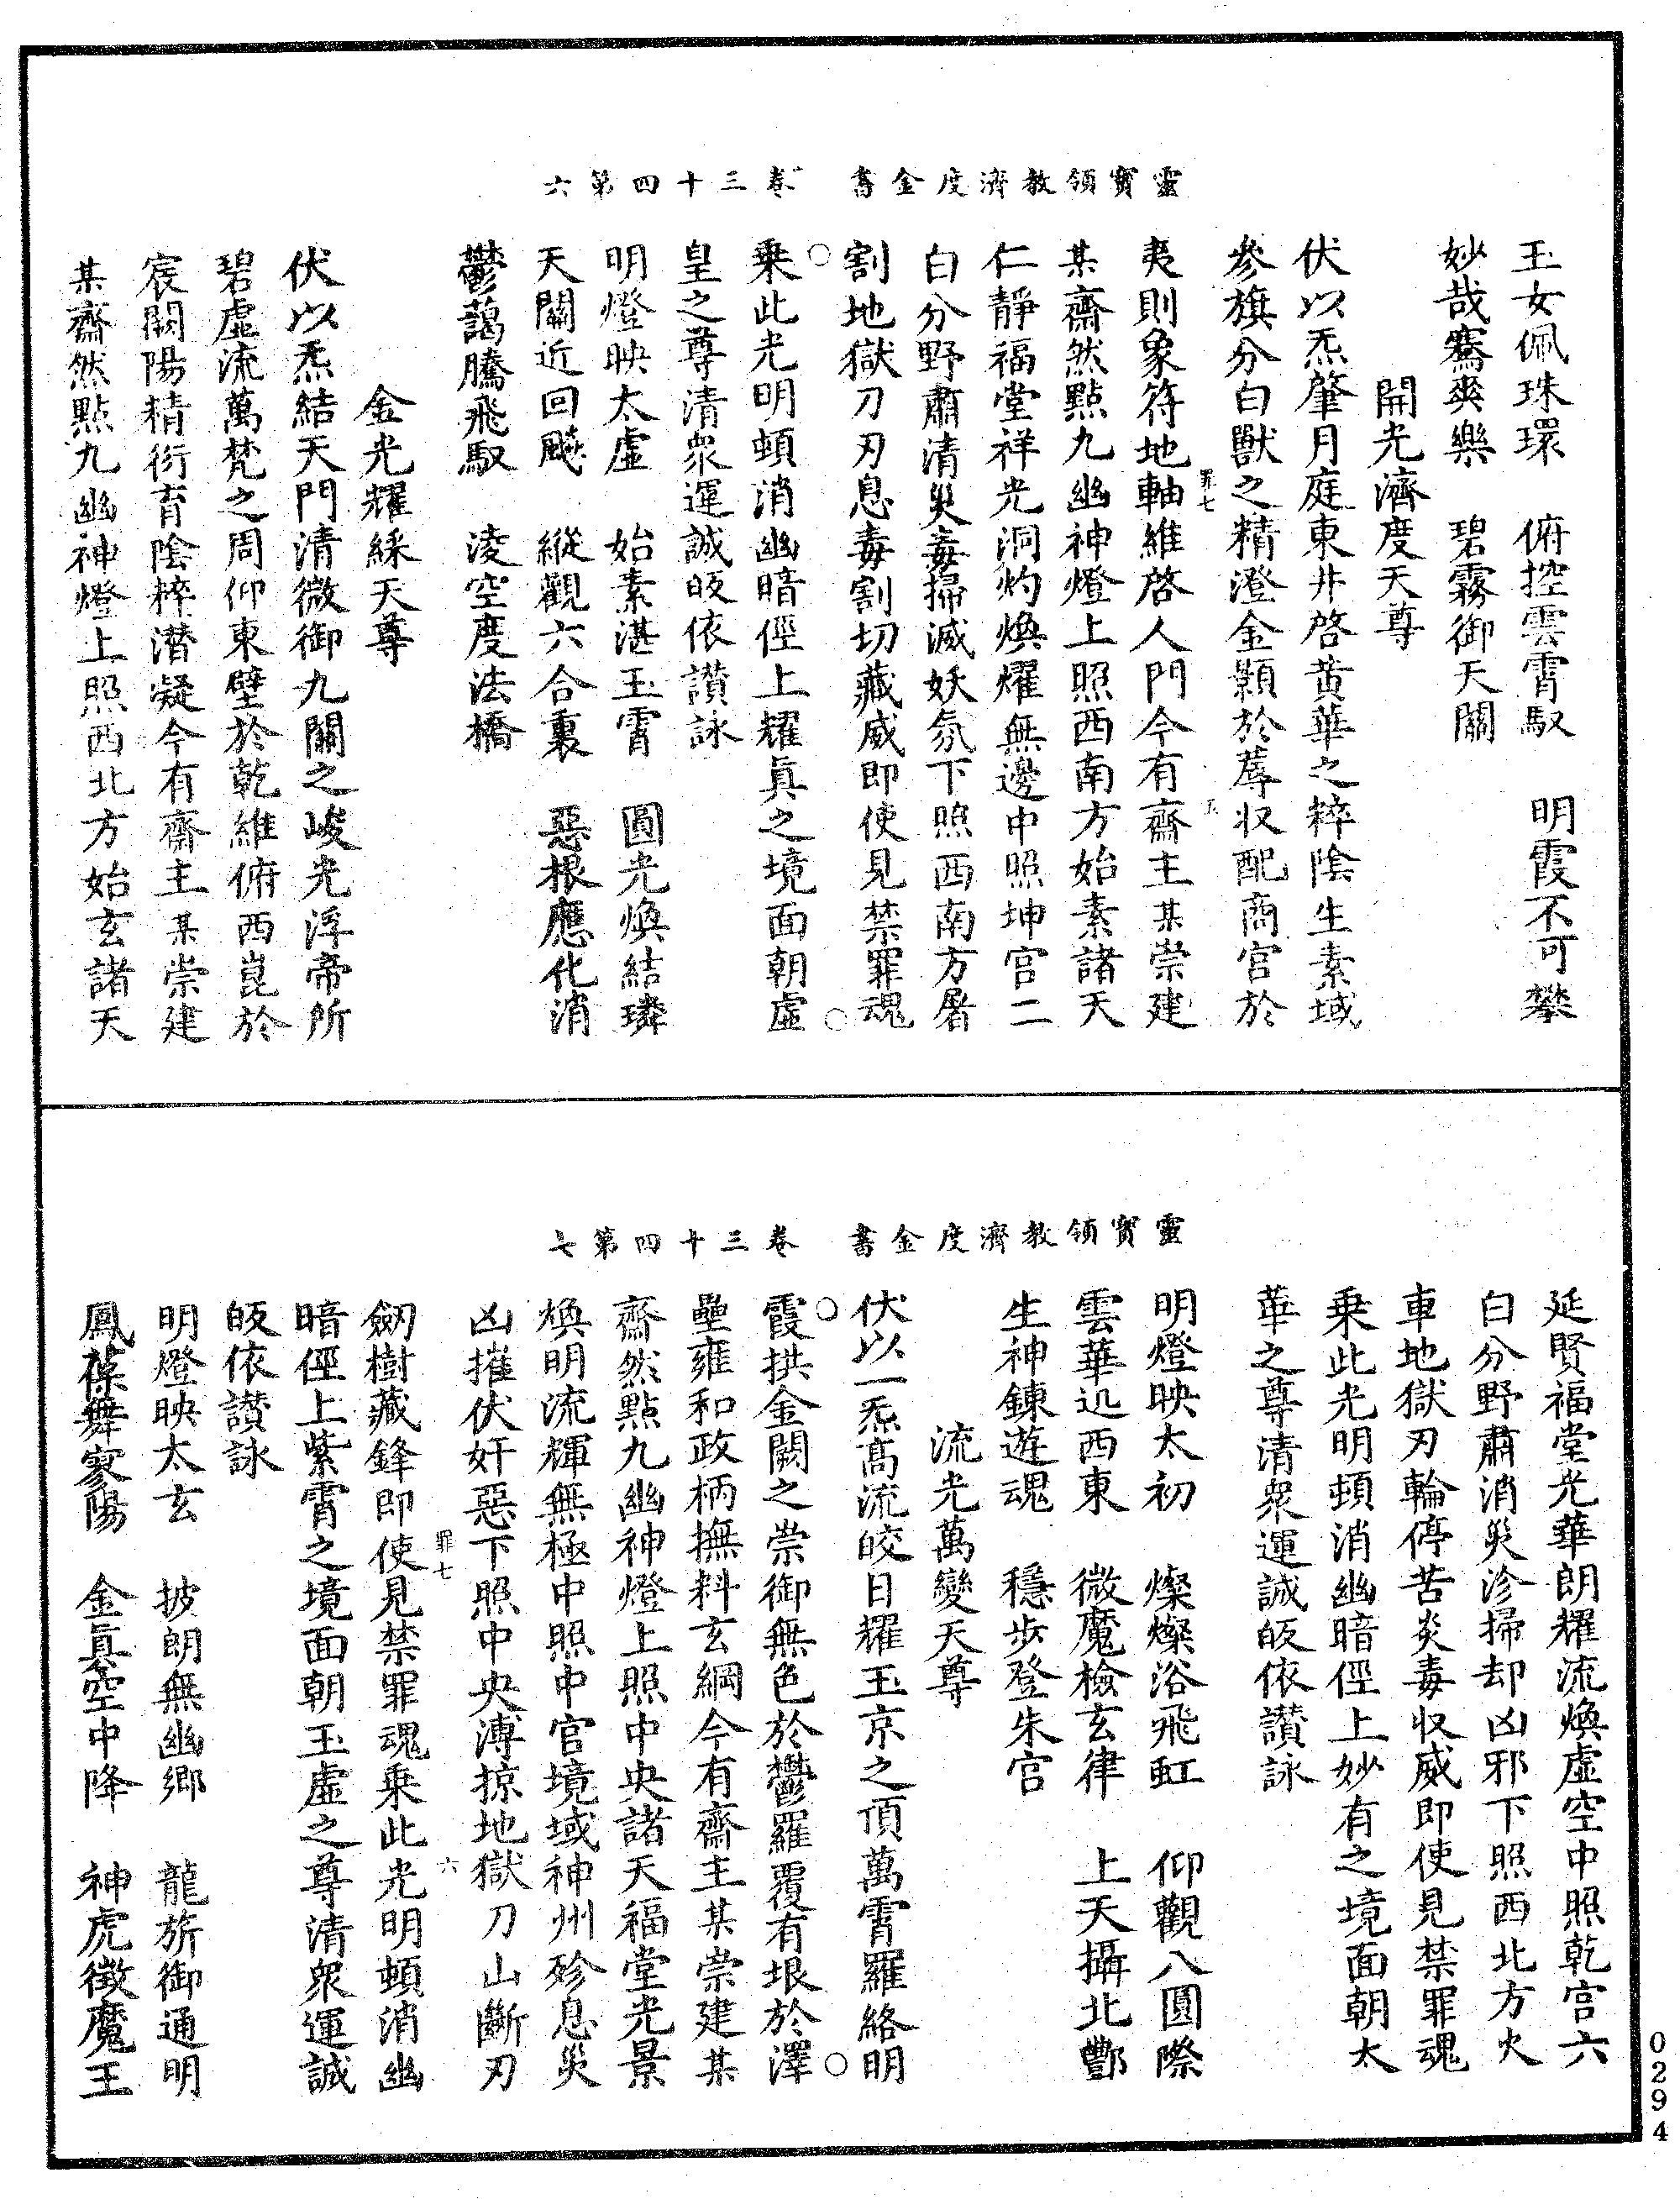 靈寶領教濟度金書 卷三十四第六
玉女佩珠環 俯控雲霄馭 明霞不可攀
妙哉騫爽樂 碧霧御天關
開光濟度天尊
伏以炁肇月庭東井啓黃華之粹陰生素域
參旗分白獸之精澄金顥於蓐收配商宮於
夷則象符地軸維啓人門今有齋主某崇建
某齋然點九幽神燈上照西南方始素諸天
仁靜福堂祥光洞灼煥耀無邊中照坤宮二
白分野肅清災毒掃滅妖氛下照西南方屠
割地獄刀刃息毒割切藏威即使見禁罪魂
乘此光明頓消幽暗徑上耀眞之境面朝虛
皇之尊清衆運誠皈依讚詠
明燈映太虛 始素湛玉霄 圓光煥結璘
天關近回飈 縱觀六合裏 惡根應化消
鬱藹騰飛馭 淩空度法橋
金光耀綵天尊
伏以炁結天門清微御九關之峻光浮帝所
碧虛流萬梵之周仰東壁於乾維俯西崑於
宸闕陽精衍育陰粹潛凝今有齋主某崇建
某齋然點九幽神燈上照西北方始玄諸天
罪七
五
靈寶領教濟度金書 卷三十四第七
延賢福堂光華朗耀流煥虛空中照乾宮六
白分野肅消災沴掃却凶邪下照西北方火
車地獄刃輪停苦炎毒收威即使見禁罪魂
乘此光明頓消幽暗徑上妙有之境面朝太
華之尊清衆運誠皈依讚詠
明燈映太初 燦燦浴飛虹 仰觀八圓際
雲華迅西東 微魔檢玄律 上天攝北酆
生神鍊遊魂 穩步登朱宮
流光萬變天尊
伏以一炁高流皎日耀玉京之頂萬霄羅絡明
霞拱金闕之崇御無色於鬱羅覆有垠於澤
壘雍和政柄撫料玄綱今有齋主某崇建某
齋然點九幽神燈上照中央諸天福堂光景
煥明流輝無極中照中宮境域神州殄息災
凶摧伏奸惡下照中央溥掠地獄刀山斷刃
劒樹藏鋒即使見禁罪魂乘此光明頓消幽
暗徑上紫霄之境面朝玉虛之尊清衆運誠
皈依讚詠
明燈映太玄 披朗無幽鄉 龍旂御通明
鳳葆舞寥陽 金眞空中降 神虎徵魔王
罪七
六
0294